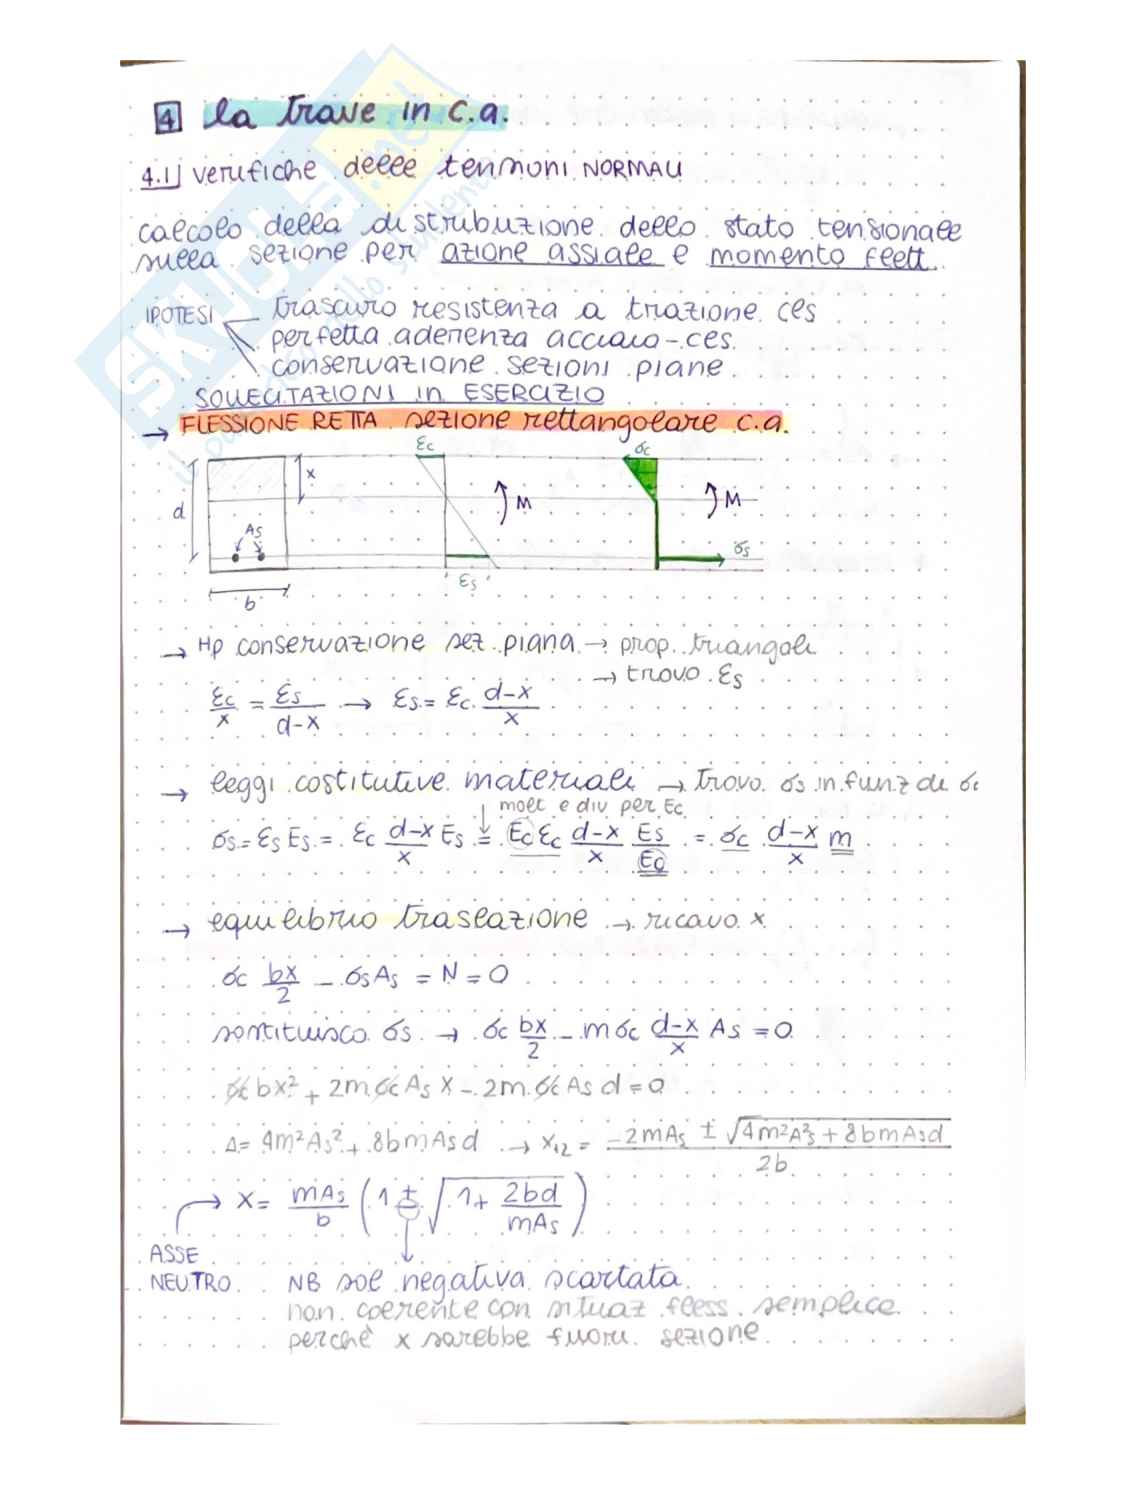 4 la trave in c.a.
4.1 verifiche delle tensioni NORMALI
calcolo della distribuzione dello stato tensionale
sulla sezione per azione assiale e momento flett.
IPOTESI trascuro resistenza a trazione cls
perfetta aderenza acciaio-cls
conservazione sezioni piane
SOLLECITAZIONI in ESERCIZIO
→ FLESSIONE RETTA sezione rettangolare c.a.
εc σc
x
d
M M
As
σs
εs
b
→ Hp conservazione sez. piana → prop. triangoli
→ trovo εs
εc/x = εs/(d-x) → εs = εc (d-x)/x
→ leggi costitutive materiali → trovo σs in funz di σc
molt e div per Ec
σs = εs Es = εc (d-x)/x Es = Ec εc (d-x)/x Es/Ec = σc (d-x)/x m
→ equilibrio traslazione → ricavo x
σc bx/2 - σs As = N = 0
sostituisco σs → σc bx/2 - m σc (d-x)/x As = 0
σc bx² + 2m σc As x - 2m σc As d = 0
Δ = 4m²As² + 8bmAsd → x12 = (-2mAs ± √(4m²A²s + 8bmAsd))/2b
→ x = mAs/b (1 ± √(1 + 2bd/mAs))
ASSE
NEUTRO NB sol negativa scartata
non coerente con situaz fless. semplice
perchè x sarebbe fuori sezione
SKUOLA.net